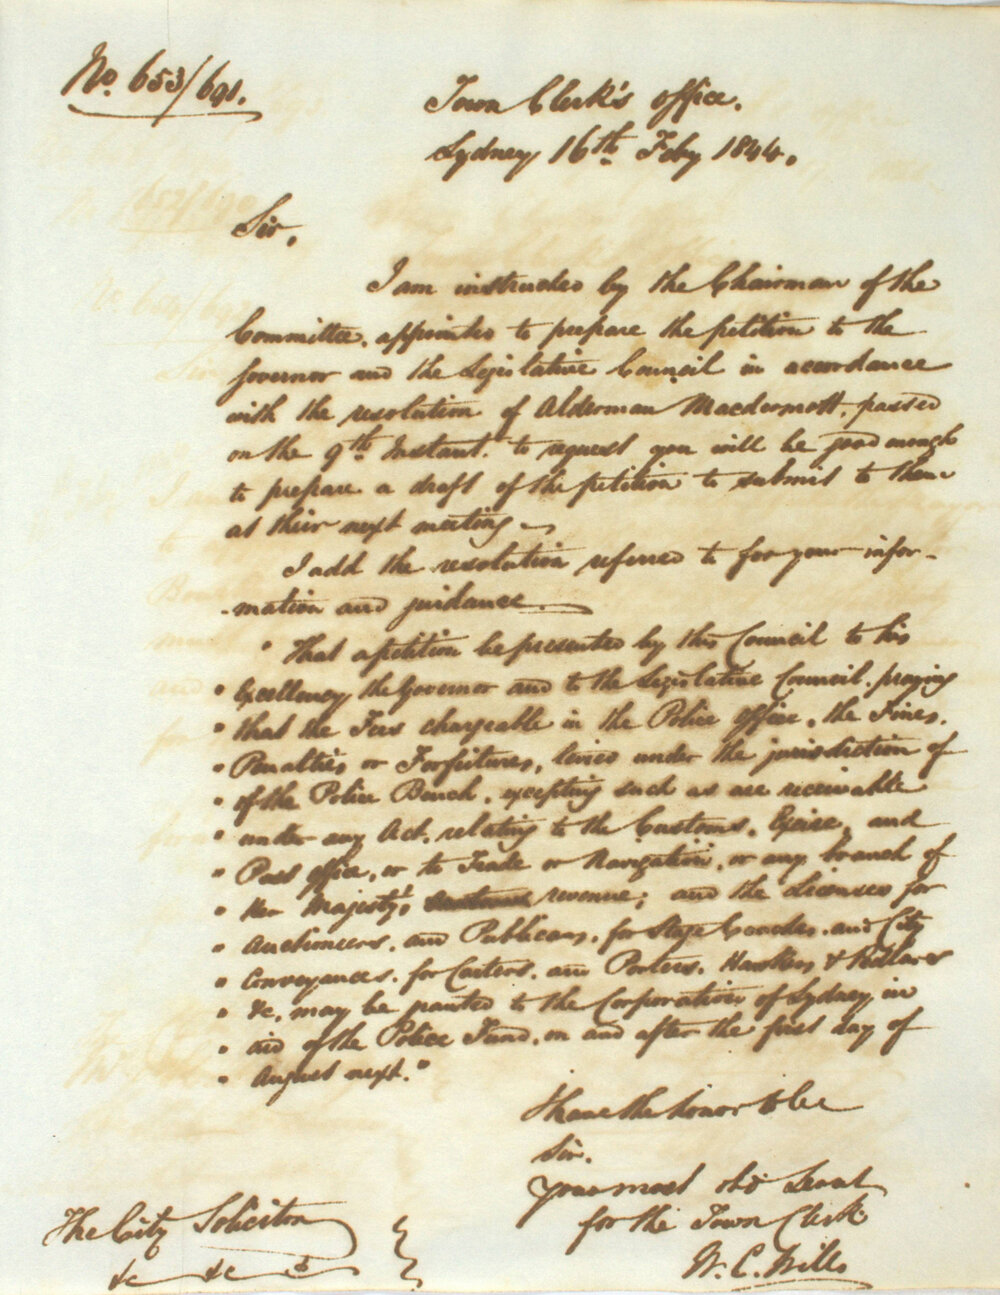 No. 653/691.
Town Clerk's office.
Sydney 16th Feby 1844.
Sir,
I am instructed by the Chairman of the
Committee, appointed to prepare the petition to the
Governor and the Legislative Council in accordance
with the resolution of Alderman Macdermott, passed
on the 9th Instant. to request you will be good enough
to prepare a draft of the petition to submit to them
at their next meeting.
I add the resolution referred to for your infor-
-mation and guidance.
" That a petition be presented by this Council to his
" Excellency the Governor and to the Legislative Council. praying
" that the Fees chargeable in the Police office, the Fines,
" Penalties or Forfeitures, levied under the jurisdiction of
" of the Police Bench, excepting such as are receivable
" under any Act, relating to the Customs, Excise, and
" Post office, or to Trade or Navigation, or any branch of
" Her Majesty's revenue; and the Licenses for
" Auctioneers, and Publicans, for Stage Coaches and City
" Conveyances, for Carters, and Porters, Hawkers & Pedlars
" &c, may be granted to the Corporation of Sydney in
" aid of the Police Fund, on and after the first day of
" August next."
I have the honor to be
Sir.
Your most obd Servt
for the Town Clerk
W. C. Wills
The City Solicitor
&c &c &c